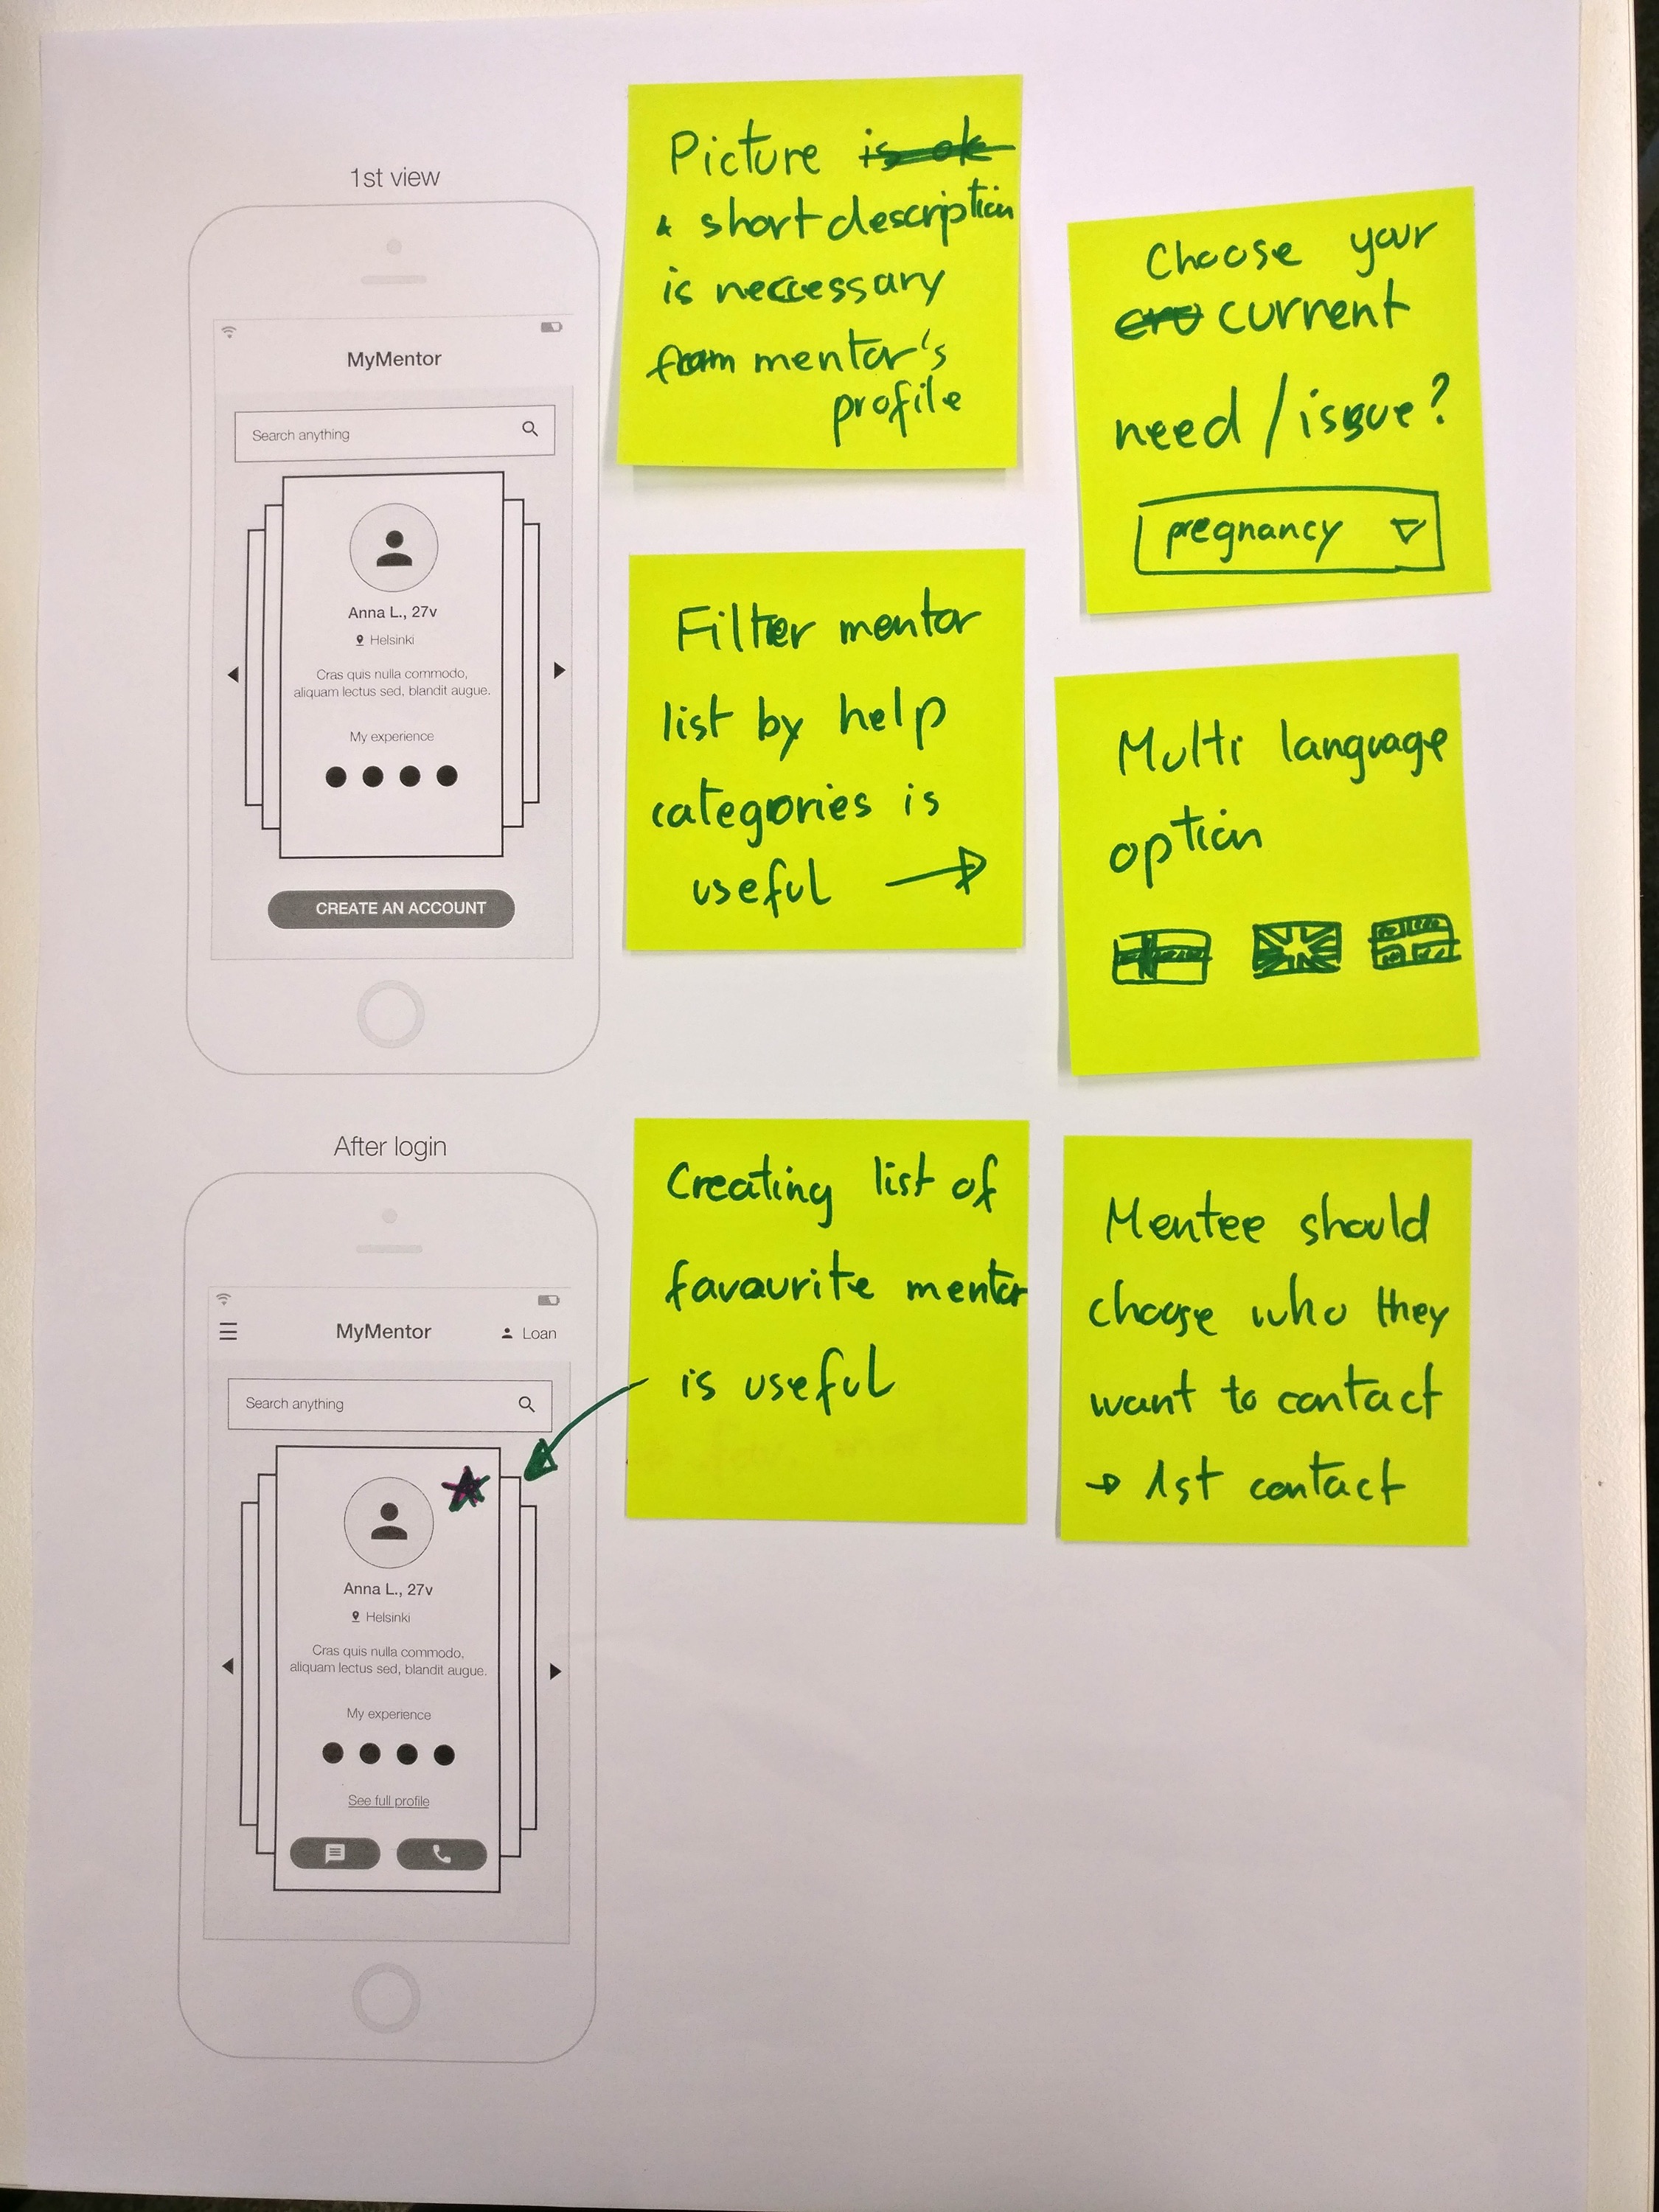 1st view
MyMentor
Search anything
Anna L., 27v
Helsinki
Cras quis nulla commodo,
aliquam lectus sed, blandit augue.
My experience
CREATE AN ACCOUNT
Picture is ok
& short description
is neccessary
from mentor's
profile
Choose your
current
need / issue?
pregnancy
Filter mentor
list by help
categories is
useful →
Multi language
option
After login
MyMentor
Loan
Search anything
Anna L., 27v
Helsinki
Cras quis nulla commodo,
aliquam lectus sed, blandit augue.
My experience
See full profile
Creating list of
favourite mentor
is useful
Mentee should
choose who they
want to contact
→ 1st contact